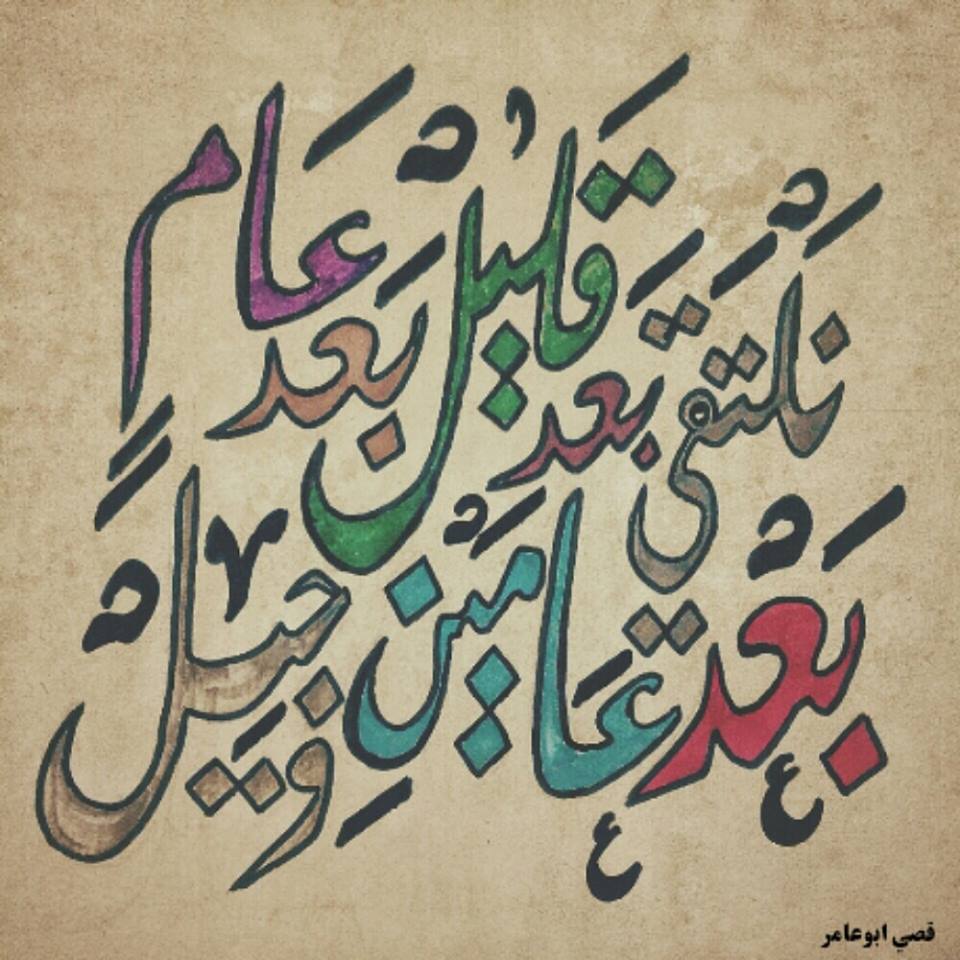 نلتقي بعد قليل بعد عام
بعد عامين وجيل
قصي ابوعامر